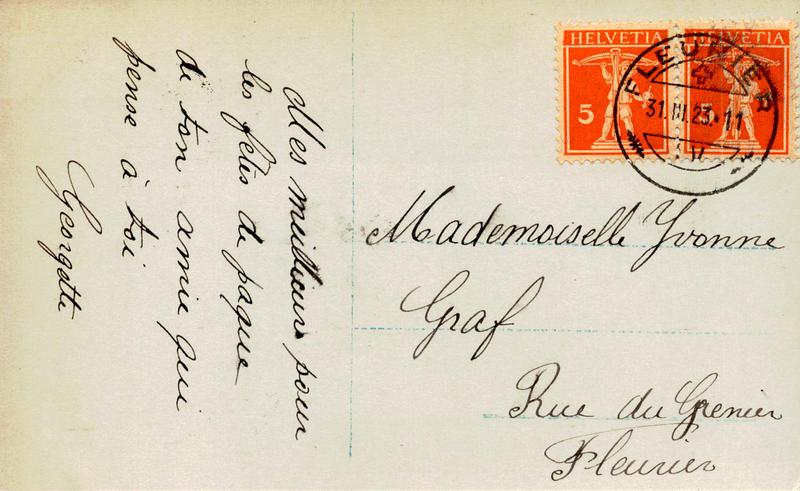 Mes meillieurs pour
les fêtes de paque
de ton amie qui
pense à toi
Georgette
HELVETIA
5
HELVETIA
5
FLEURIER
31.III.23.-11
Mademoiselle Yvonne
Graf
Rue du Grenier
Fleurier